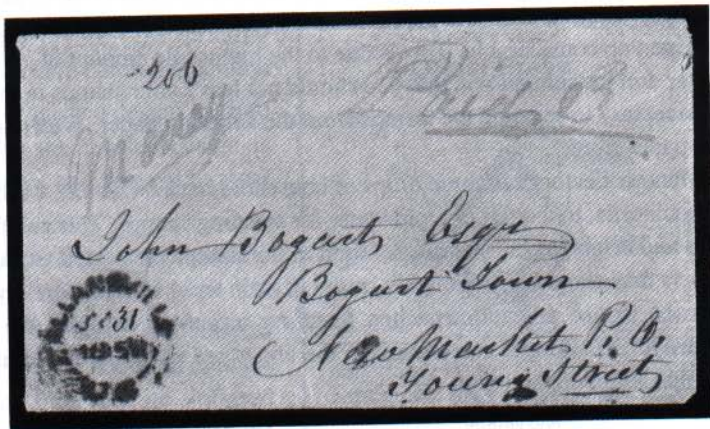 206
Money
Paid
John Bogart Esqr
Bogart Town
New Market P. O.
Young Street
31